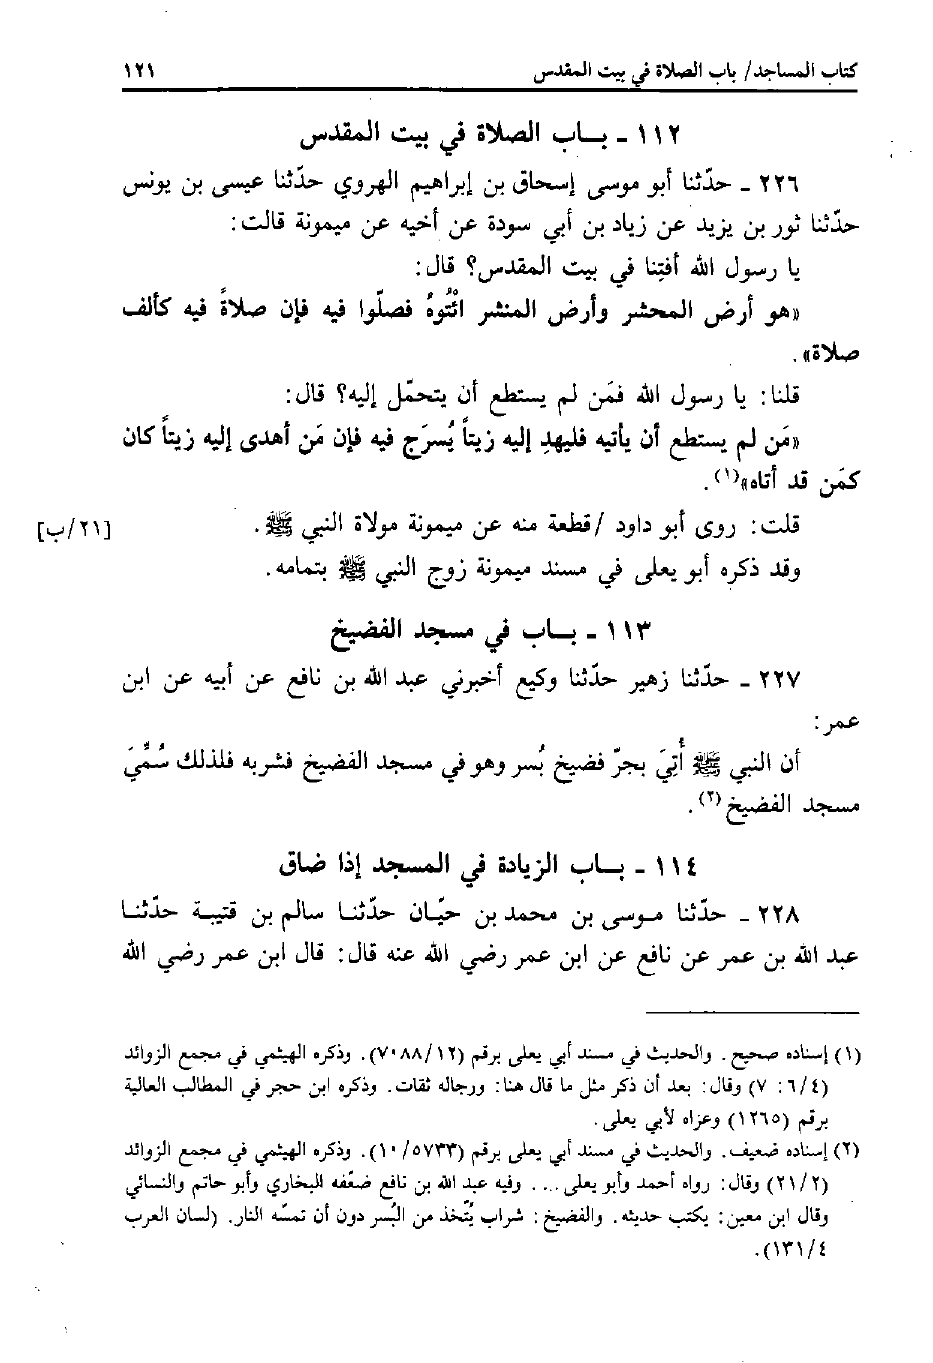 كتاب المساجد/ باب الصلاة في بيت المقدس ١٢١
١١٢ - بـاب الصلاة في بيت المقدس
٢٢٦ - حدّثنا أبو موسى إسحاق بن إبراهيم الهروي حدّثنا عيسى بن يونس
حدّثنا ثور بن يزيد عن زياد بن أبي سودة عن أخيه عن ميمونة قالت:
يا رسول الله أفتِنا في بيت المقدس؟ قال:
«هو أرض المحشر وأرض المنشر ائْتُوهُ فصلّوا فيه فإن صلاةً فيه كألف
صلاة».
قلنا: يا رسول الله فمَن لم يستطع أن يتحمّل إليه؟ قال:
«مَن لم يستطع أن يأتيه فليهدِ إليه زيتاً يُسرَج فيه فإن مَن أهدى إليه زيتاً كان
كمَن قد أتاه»(١).
قلت: روى أبو داود /قطعة منه عن ميمونة مولاة النبي ﷺ. [٢١/ب]
وقد ذكره أبو يعلى في مسند ميمونة زوج النبي ﷺ بتمامه.
١١٣ - بـاب في مسجد الفضيخ
٢٢٧ - حدّثنا زهير حدّثنا وكيع أخبرني عبد الله بن نافع عن أبيه عن ابن
عمر:
أن النبي ﷺ أُتِيَ بجرّ فضيخ بُسر وهو في مسجد الفضيخ فشربه فلذلك سُمِّيَ
مسجد الفضيخ(٢).
١١٤ - بـاب الزيادة في المسجد إذا ضاق
٢٢٨ - حدّثنا موسى بن محمد بن حيّان حدّثنا سالم بن قتيبة حدّثنا
عبد الله بن عمر عن نافع عن ابن عمر رضي الله عنه قال: قال ابن عمر رضي الله
(١) إسناده صحيح. والحديث في مسند أبي يعلى برقم (٧٠٨٨/١٢). وذكره الهيثمي في مجمع الزوائد
(٦/٤: ٧) وقال: بعد أن ذكر مثل ما قال هنا: ورجاله ثقات. وذكره ابن حجر في المطالب العالية
برقم (١٢٦٥) وعزاه لأبي يعلى.
(٢) إسناده ضعيف. والحديث في مسند أبي يعلى برقم (١٠/٥٧٣٣). وذكره الهيثمي في مجمع الزوائد
(٢١/٢) وقال: رواه أحمد وأبو يعلى.... وفيه عبد الله بن نافع ضعّفه البخاري وأبو حاتم والنسائي
وقال ابن معين: يكتب حديثه. والفضيخ: شراب يُتّخذ من البُسر دون أن تمسّه النار. (لسان العرب
١٣١/٤).